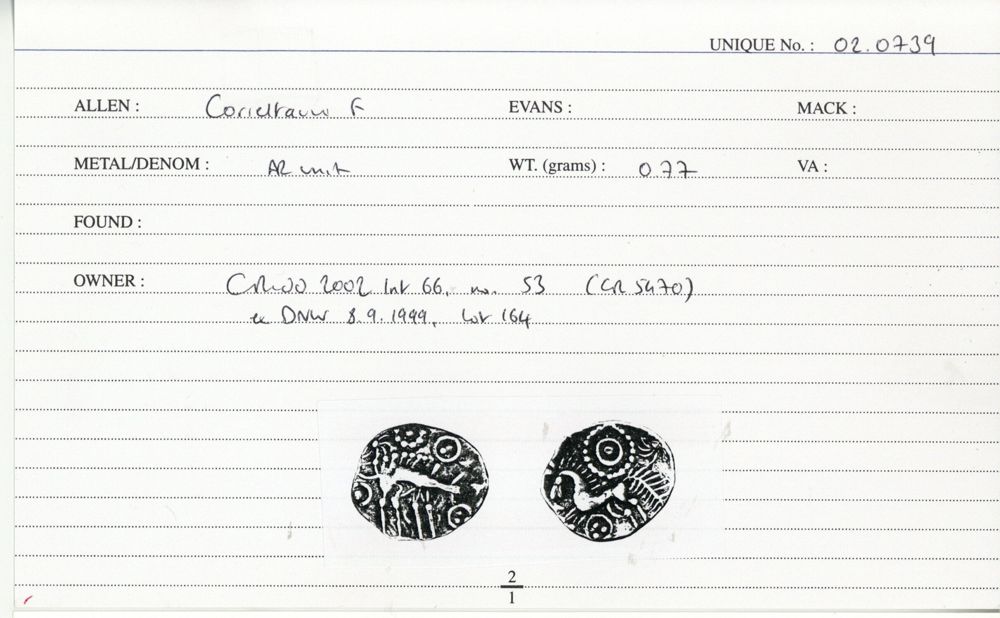 UNIQUE No. : 02.0739
ALLEN : Corieltauvi F EVANS : MACK :
METAL/DENOM : AR unit WT. (grams) : 0.77 VA :
FOUND :
OWNER : 2002 list 66, no. 53 (CR 5470)
ex DNW 8.9.1999, lot 164
2
1